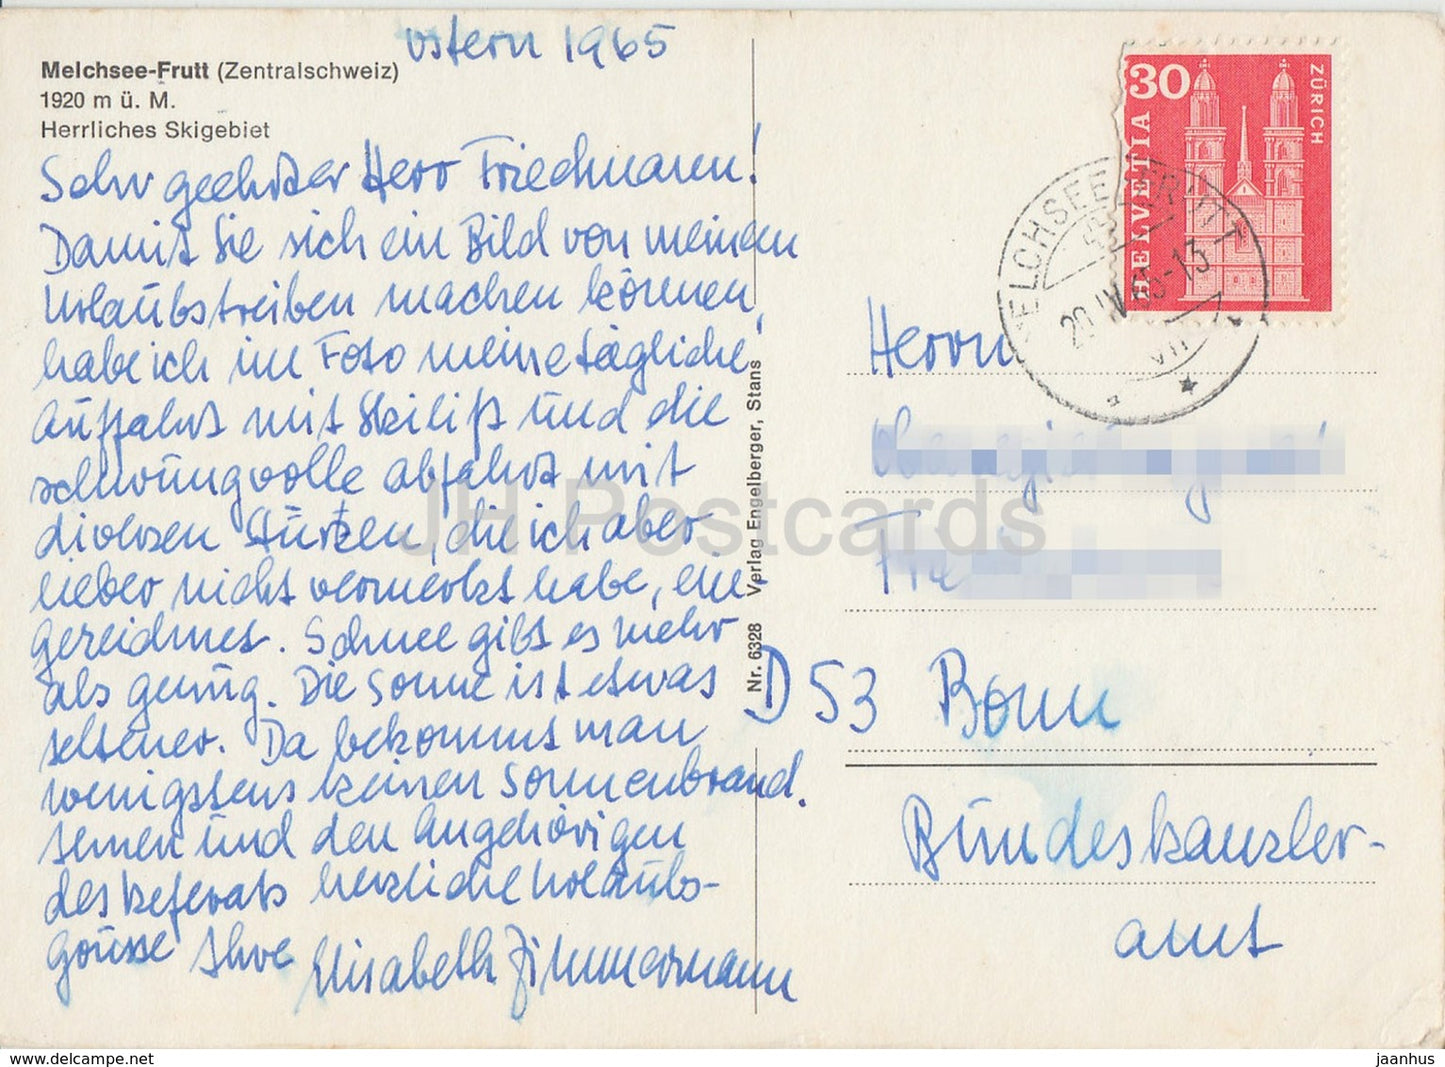 Ostern 1965
Melchsee-Frutt (Zentralschweiz)
1920 m ü. M.
Herrliches Skigebiet
Sehr geehrter Herr Friedmann!
Damit Sie sich ein Bild von meinem
Urlaubstreiben machen können,
habe ich im Foto meine tägliche
Auffahrt mit Skilift und die
schwungvolle Abfahrt mit
diversen Stürzen, die ich aber
lieber nicht vermerkt habe, ein-
gezeichnet. Schnee gibt es mehr
als genug. Die Sonne ist etwas
seltener. Da bekommt man
wenigstens keinen Sonnenbrand.
Ihnen und den Angehörigen
des Referats herzliche Urlaubs-
grüsse Ihre Elisabeth Zimmermann
Nr. 6328 Verlag Engelberger, Stans
HELVETIA 30 ZÜRICH
MELCHSEE-FRUTT
20.IV.65-13
VII
Herrn
D 53 Bonn
Bundeskanzler-
amt
JH Postcards
delcampe.net
jaanhus